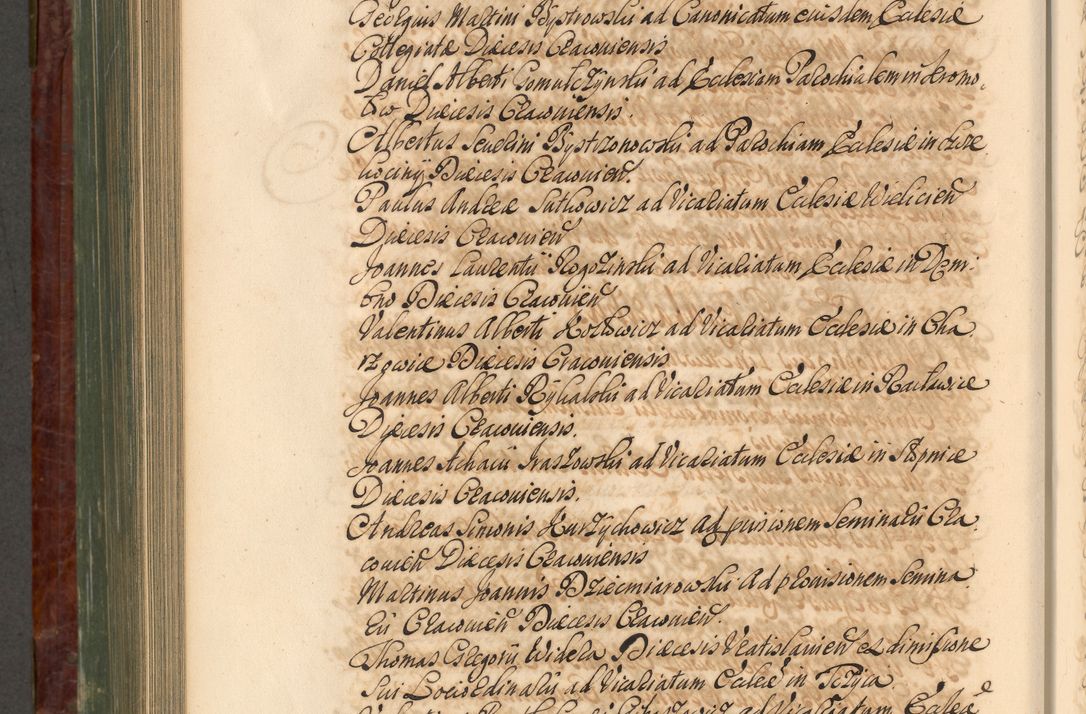 Georgius Martini Bystrowski ad Canonicatum eiusdem Ecclesiæ
Collegiatæ Diæcesis Cracouiensis
Daniel Alberti Gomulczynski ad Ecclesiam Parochialem in Kromo,
łow Diæcesis Cracouiensis.
Albertus Seuerini Bystrzonowski ad Parochiam Ecclesiæ in
Diæcesis Cracouien.
Paulus Andreæ Sutkowicz ad Vicariatum Ecclesiæ Wielicien
Diæcesis Cracouien
Joannes Laurentii Rogozinski ad Vicariatum Ecclesiæ in Dem:
bno Diæcesis Cracouien
Valentinus Alberti Kozłowicz ad Vicariatum Ecclesiæ in Cha,
rzowice Diæcesis Cracouiensis
Joannes Alberti Rychalski ad Vicariatum Ecclesiæ in Racławice
Diæcesis Cracouiensis.
Joannes Achacii Iraszowski ad Vicariatum Ecclesiæ in Stopnice
Diæcesis Cracouiensis.
Andreas Simonis Kurzychowicz ad prouisionem Seminarii Cra,
couien Diæcesis Cracouiensis
Martinus Joannis Dziecmiarowski ad prouisionem Semina,
rii Cracouien Diæcesis Cracouien.
Thomas Gregorii Widera Diæcesis Vratislauien ex dimissione
Sui Loci Ordinarii ad Vicariatum Ecclæ in
Valentinus ad Vicariatum Ecclæ